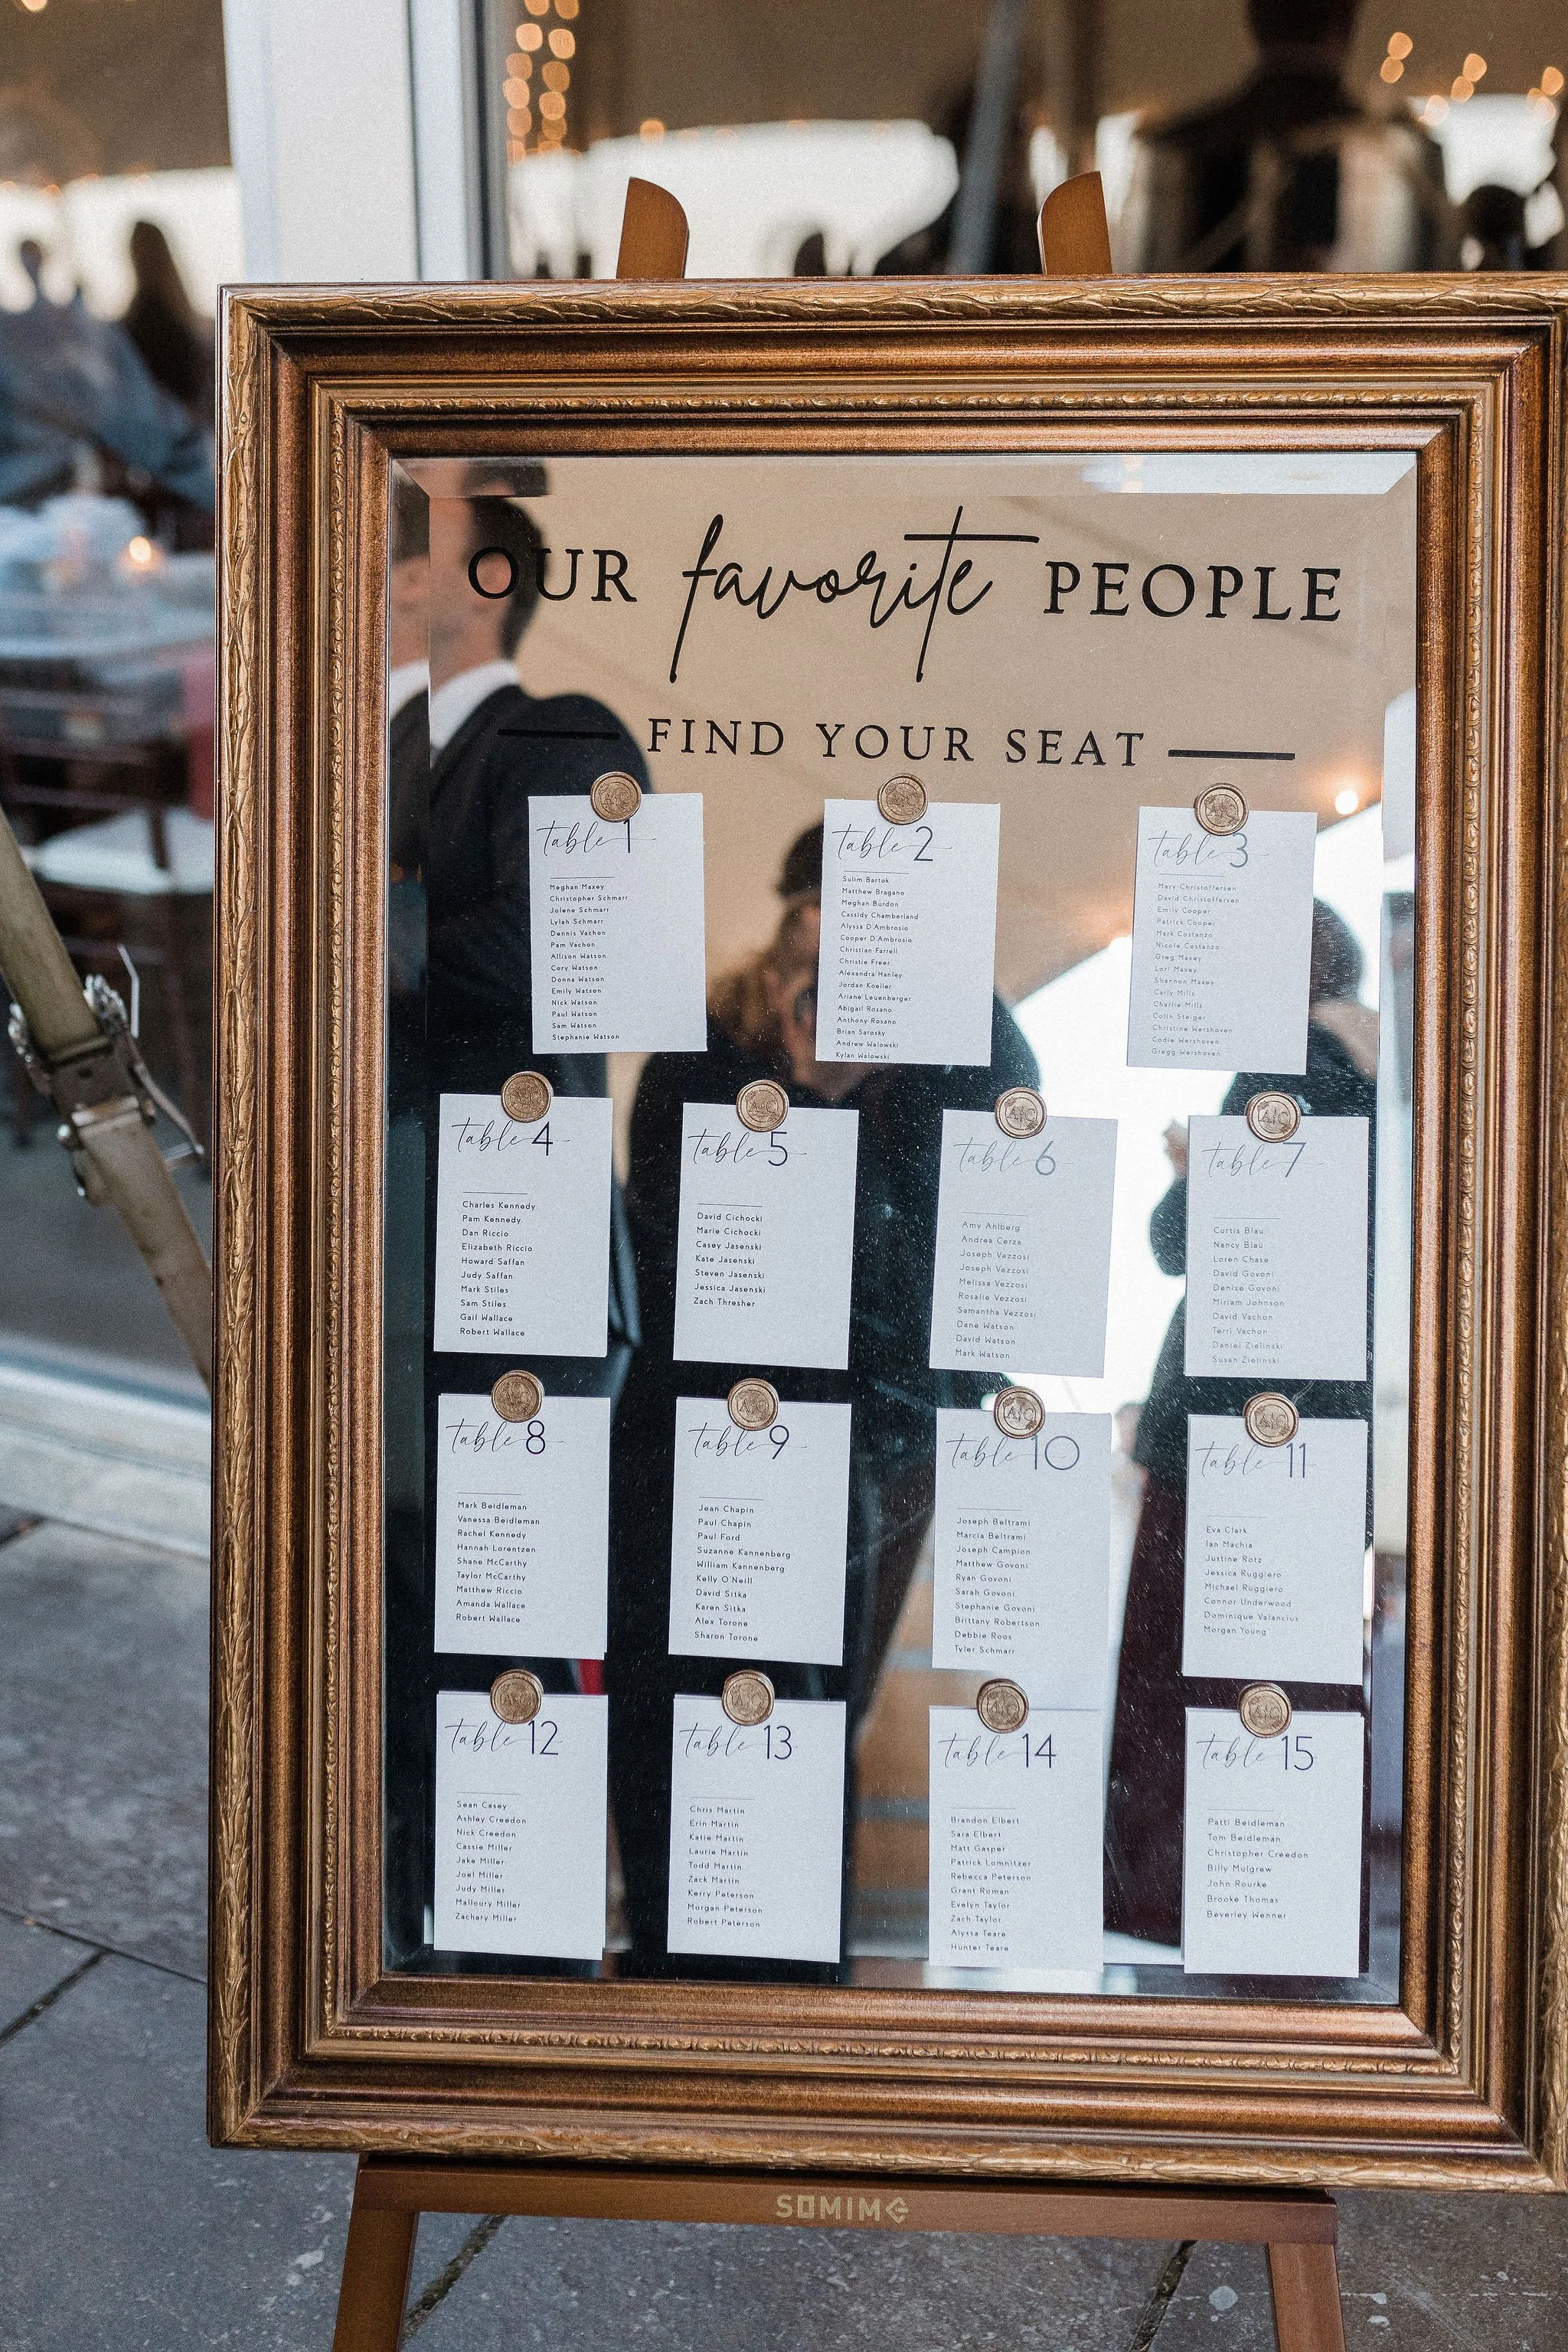 OUR favorite PEOPLE
FIND YOUR SEAT
table 1
Meghan Maxey
Christopher Schmarr
Jolene Schmarr
Lylah Schmarr
Dennis Vachon
Pam Vachon
Allison Watson
Cory Watson
Donna Watson
Emily Watson
Nick Watson
Paul Watson
Sam Watson
Stephanie Watson
table 2
Sulim Bartok
Matthew Bragano
Meghan Burdon
Cassidy Chamberland
Alyssa D'Ambrosio
Cooper D'Ambrosio
Christian Farrell
Christie Freer
Alexandra Hanley
Jordan Koeller
Ariane Leuenberger
Abigail Rosano
Anthony Rosano
Brian Sarosky
Andrew Walowski
Kylan Walowski
table 3
Mary Christoffersen
David Christoffersen
Emily Cooper
Patrick Cooper
Mark Costanzo
Nicole Costanzo
Greg Maxey
Lori Maxey
Shannon Maxey
Carly Mills
Charlie Mills
Colin Steiger
Christine Wershoven
Codie Wershoven
Gregg Wershoven
table 4
Charles Kennedy
Pam Kennedy
Dan Riccio
Elizabeth Riccio
Howard Saffan
Judy Saffan
Mark Stiles
Sam Stiles
Gail Wallace
Robert Wallace
table 5
David Cichocki
Marie Cichocki
Casey Jasenski
Kate Jasenski
Steven Jasenski
Jessica Jasenski
Zach Thresher
table 6
Amy Ahlberg
Andrea Cerza
Joseph Vezzosi
Joseph Vezzosi
Melissa Vezzosi
Rosalie Vezzosi
Samantha Vezzosi
Dane Watson
David Watson
Mark Watson
table 7
Curtis Blau
Nancy Blau
Loren Chase
David Govoni
Denise Govoni
Miriam Johnson
David Vachon
Terri Vachon
Daniel Zielinski
Susan Zielinski
table 8
Mark Beidleman
Vanessa Beidleman
Rachel Kennedy
Hannah Lorentzen
Shane McCarthy
Taylor McCarthy
Matthew Riccio
Amanda Wallace
Robert Wallace
table 9
Jean Chapin
Paul Chapin
Paul Ford
Suzanne Kannenberg
William Kannenberg
Kelly O'Neill
David Sitka
Karen Sitka
Alex Torone
Sharon Torone
table 10
Joseph Beltrami
Marcia Beltrami
Joseph Campion
Matthew Govoni
Ryan Govoni
Sarah Govoni
Stephanie Govoni
Brittany Robertson
Debbie Roos
Tyler Schmarr
table 11
Eva Clark
Ian Machia
Justine Rotz
Jessica Ruggiero
Michael Ruggiero
Connor Underwood
Dominique Valancius
Morgan Young
table 12
Sean Casey
Ashley Creedon
Nick Creedon
Cassie Miller
Jake Miller
Joel Miller
Judy Miller
Malloury Miller
Zachary Miller
table 13
Chris Martin
Erin Martin
Katie Martin
Laurie Martin
Todd Martin
Zack Martin
Kerry Peterson
Morgan Peterson
Robert Peterson
table 14
Brandon Elbert
Sara Elbert
Matt Gasper
Patrick Lomnitzer
Rebecca Peterson
Grant Roman
Evelyn Taylor
Zach Taylor
Alyssa Teare
Hunter Teare
table 15
Patti Beidleman
Tom Beidleman
Christopher Creedon
Billy Mulgrew
John Rourke
Brooke Thomas
Beverley Wenner
SOMIME